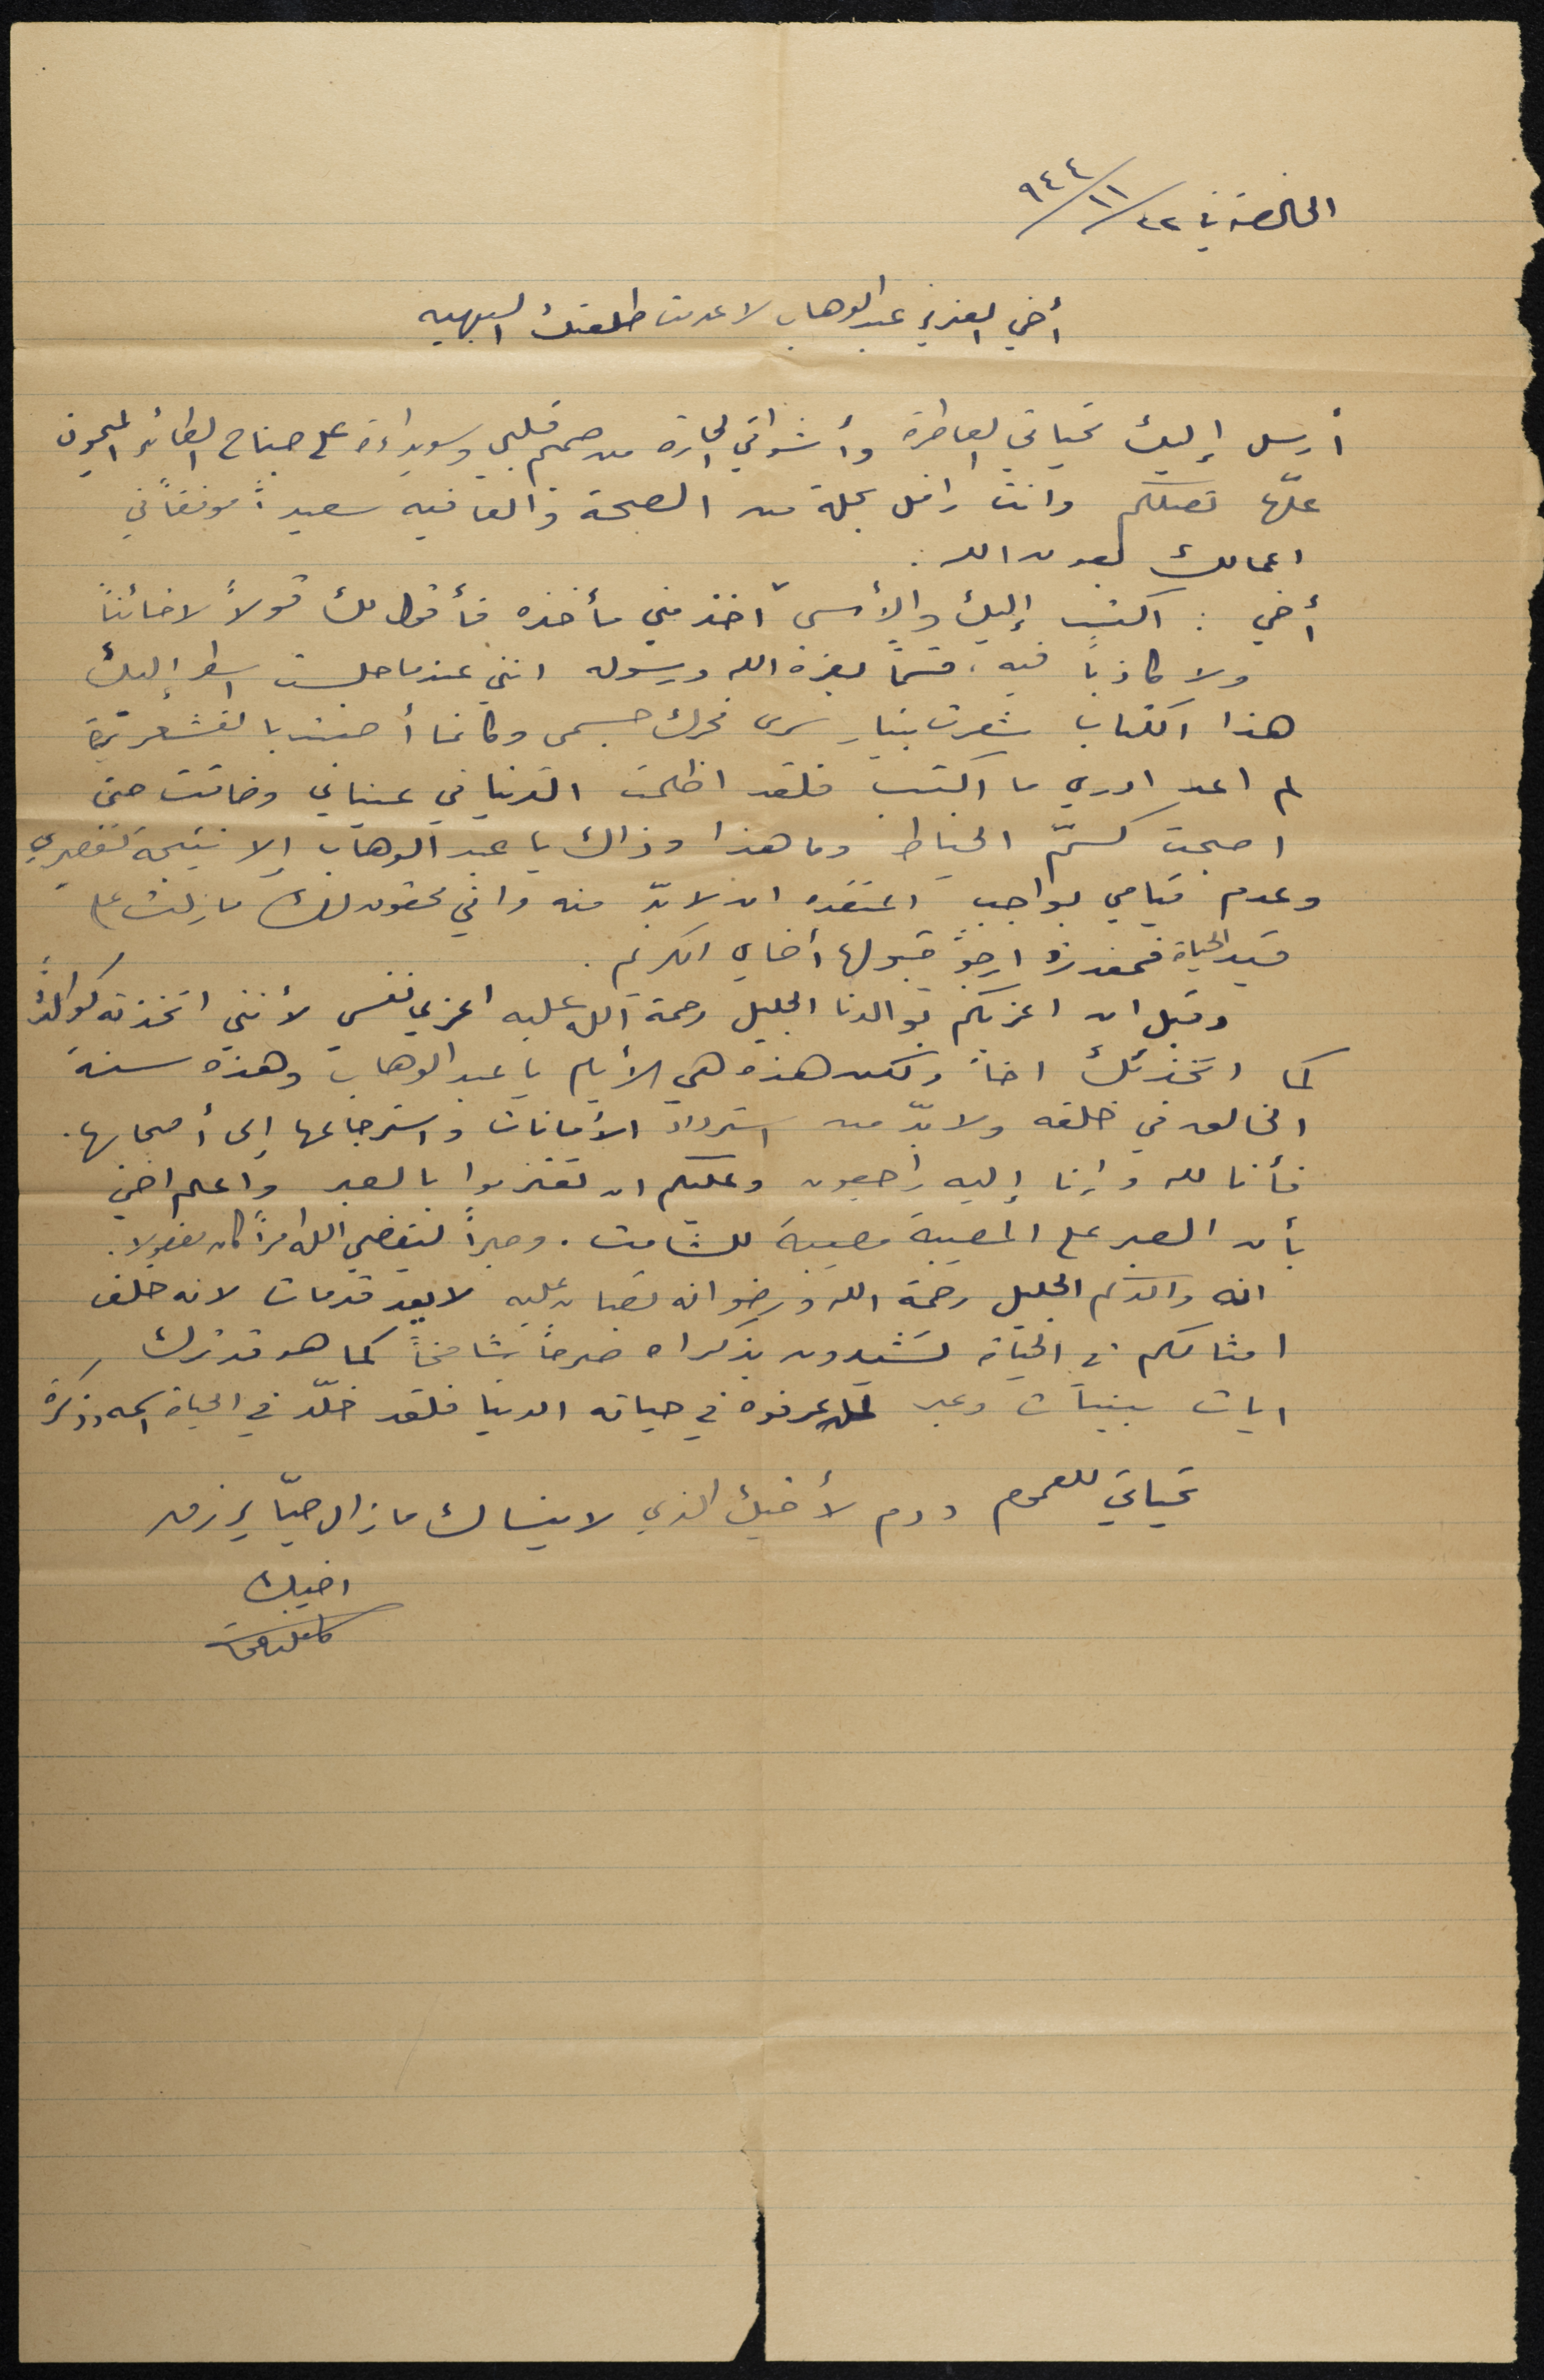 الخالصة في ٢٢/١١/٩٤٤
أخي العزيز عبد الوهاب لا عدمت طلعتك البهيه
أرسل إليك تحياتي العاطرة وأشواقي الحارة من صميم قلبي وسويداءه على جناح الطائر الميمون
علّها تصلكم وانت رافل بحلة من الصحة والعافيه سعيداً موفقاً في
اعمالك بعون الله .
أخي : اكتب إليك والأسى آخذ مني مأخذه فأقول لك قولاً لا خائناً
ولا كاذباً فيه ، قسماً بعزة الله ورسوله انني عندما جلست اسطر إليك
هذا الكتاب شعرت بتيار سرى فحرك جسمي وكانما أصبت بالقشعريرة
لم اعد ادري ما اكتب فلقد اظلمت الدنيا في عيناي وضاقت حتى
اصبحت كسمّ الخياط وما هذا وذاك يا عبد الوهاب إلا نتيجة تقصيري
وعدم قيامي بواجب اعتقده ان لا بدّ منه واني لمحقوق لك ما زلت على
قيد الحياة فمعذرة ارجو قبولها أخاي الكريم .
وقبل ان اعزيكم بوالدنا الجليل رحمة الله عليه اعزي نفسي لأنني اتخذته كوالدٍ
كما اتخذتك اخاً ولكن هذه هي الأيام يا عبد الوهاب وهذه سنة
الخالق في خلقه ولا بدّ من استرداد الأمانات واسترجاعها إلى أصحابها .
فأنا لله وإنا إليه راجعون وعليكم ان تعتزموا بالصبر واعلم اخي
بأن الصبر على المصيبة مصيبة للشامت . وصبراً ليقضي الله امراً كان مفعولا .
انه والدكم الجليل رحمة الله ورضوانه يصبان عليه لا يعد قدمات لانه خلف
امثالكم في الحياة لتشيدون بذكراه صرحاً شامخاً كما هو قد ترك
ايات بينات وعبر لمن عرفوه في حياته الدنيا فلقد خلّد في الحياة اسمه وذكره
تحياتي للعموم ودم لأخيك الذي لا ينساك ما زال حيّا يرزق
اخيك